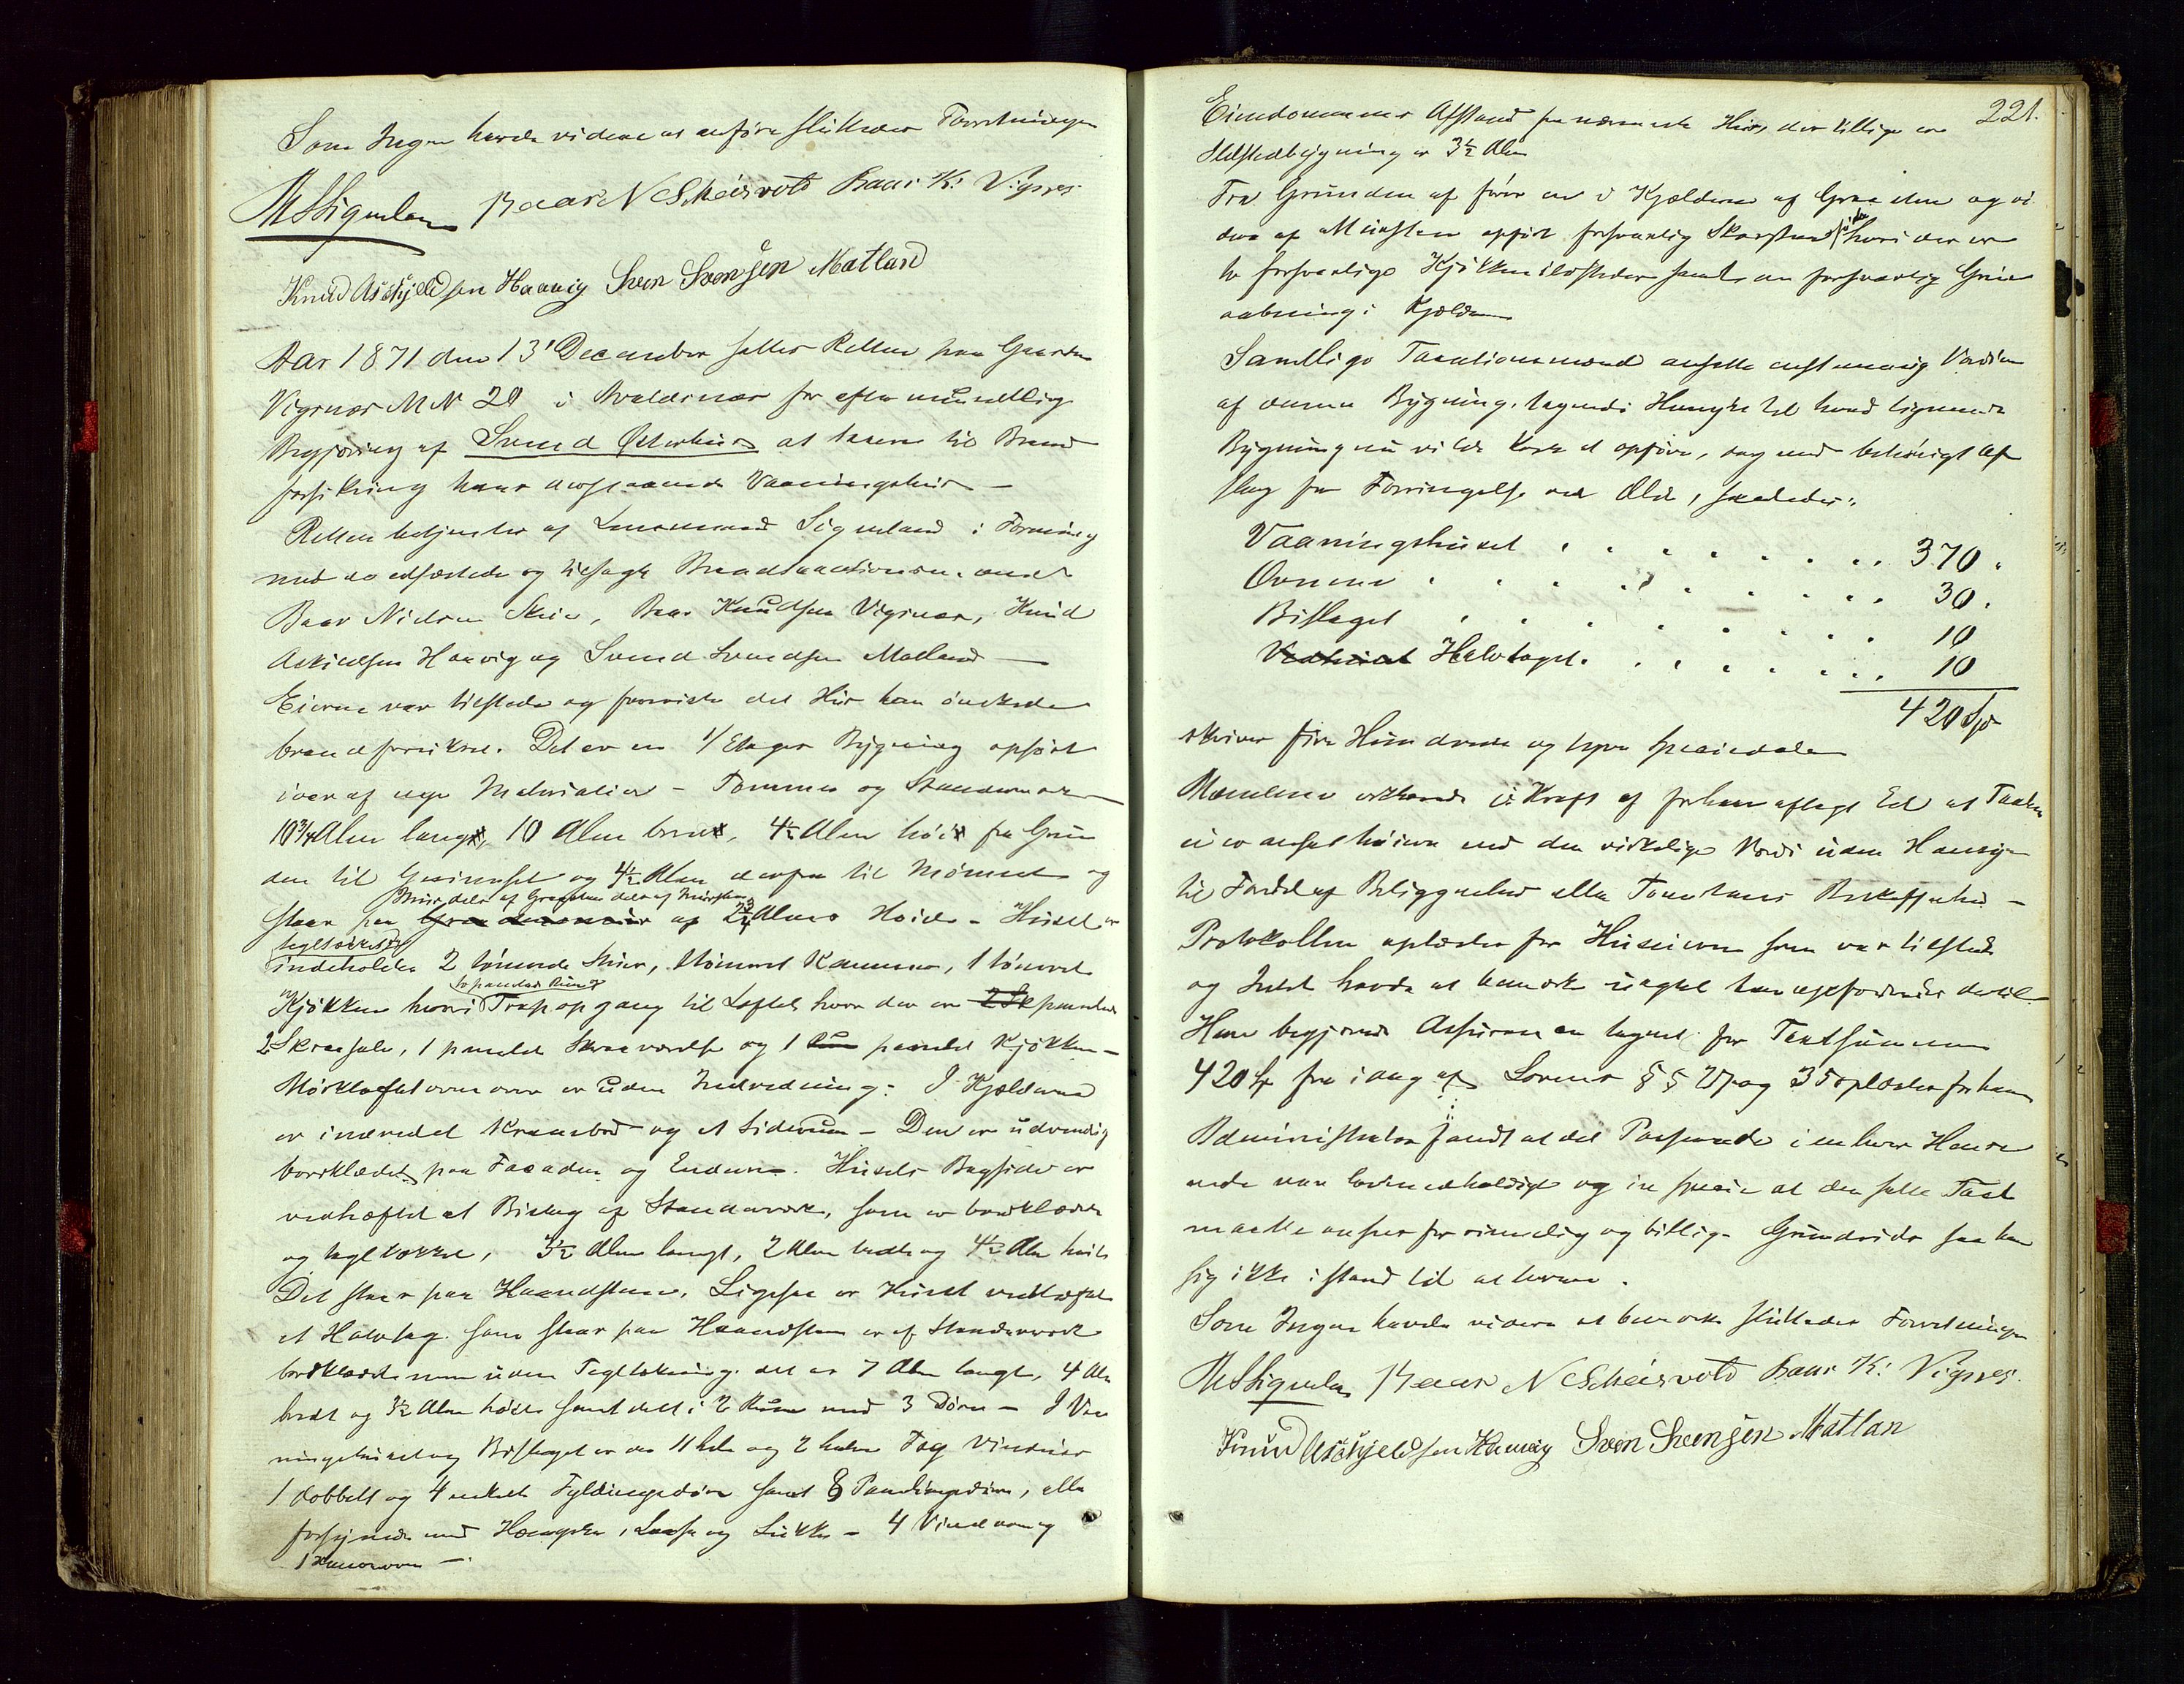 Som Ingen havde videre at anføre sluttedes Forretningen
Baar N Scheisvold Baar K: Vigsnes
Knud Aschjeldsen Haavig Sven Svensen Matland
Aar 1871 den 13' December sattes Retten paa Gaarden
Vigsnæs M N 20 i Avaldsnæs for efter mundtlig
Begjæring af Svend Østerhus at taxere til Brand
forsikring hans derstaaende Vaaningshus —
Retten betjentes af Lensmand Sigveland i Forening
med de edfæstede og tilsagte Brandtaxationsmænd
Baar Nielsen Skeie, Baar Knudsen Vigsnæs, Knud
Askieldsen Haavig og Svend Svendsen Matland —
Eieren var tilstede og foreviste det Hus han ønskede
brandforsikret. Det er en 1 1/2 Etages Bygning opført
i aar af nye Materialier – Tømmer og Standerværk
10 3/4 Alen lang, 10 Alen bred, 4 1/2 Alen høi fra Grun
den til Gesimset og 4 1/2 Alen derfra til Mønnet og
Muur dels af Graasten dels af Mursten
staar paa af 2 3/4 Alens Høide – Huset er
tegltækket og
indeholder 2 tømrede Stuer, 1 tømret Kammer, 1 tømret
to panelede Rum &
Kjøkken hvori Trapopgang til Loftet hvor der er panelede
2 Skraasale, 1 panelet Skraaværelse og 1 panelet Kjøkken –
Mørkloftet ovenover er uden Indredning. I Kjælderen
er indredet Krambod og et Siderum – Den er udvendig
bordklædet paa Facaden og Enderne. Husets Bagside er
vedhæftet et Bislag af Standerværk, som er bordklædt
og tegltækket, 3 1/2 Alen langt, 2 Alen bredt og 4 1/2 Alen høit
Det staar paa Haandsten. Ligesaa er Huset vedhæftet
et Halvtag som staar paa Haandsten er af Standerværk
bordklædt men uden Tegltækning. det er 7 Alen langt, 4 Alen
bredt og 3 1/2 Alen høit samt delt i 2 Rum med 3 Døre – I Vaa
ningshuset og Bislaget er der 11 hele og 2 halve Fag Vinduer
1 dobbelt og 4 enkelte Fyldingsdøre samt 8 Panelingsdøre, alle
forsynede med Hængsler, Laase og Lukker – 4 Vindovne og
1 Kakkelovn —
221.
Eiendommens Afstand fra nærmeste Huus, der tillige er
Ildstedbygning er 3 1/2 Alen
Fra Grunden af fører en i Kjælderen af Graasten og vi
dere af Mursten opført forsvarlig Skorsten hvori der er
to forsvarlige Kjøkkenildsteder samt en forsvarlig Grue
aabning i Kjælderen
Samtlige Taxationsmænd ansatte enstemmig Værdien
af denne Bygning, tagende Hensyn til hvad lignende
Bygning nu vilde koste at opføre, dog med behørigt Af
slag for Forringelse ved Ælde, saaledes:
Vaaningshuset . . . . . . . . . 370 .
Ovnene . . . . . . . . . 30 .
Bislaget . . . . . . . . . 10
Halvtaget . . . . . . . . . 10
420 Spd
skriver fire Hundrede og tyve Speciedaler
Mændene erklærede i Kraft af forhen aflagt Ed at Taxten
ei er ansat høiere end den virkelige Værdi uden Hensyn
til Fordel af Beliggenhed eller Tomtens Beskaffenhed –
Protokollen oplæstes for Huseieren som var tilstede
og Intet havde at bemærke uagtet han opfordredes dertil –
Han begjærede Assurancen tegnet for Taxtsummen
420 Sp fra idag af. Lovens §§ 27 og 35 oplæstes for ham
Administrator fandt at det Passerede i enhver Hense
ende var lovmedholdigt og in specie at den satte Taxt
maatte ansees for rimelig og billig. Grundrids saa han
sig ikke istand til at levere.
Som Ingen havde videre at bemærke sluttedes Forretningen
Baar N Scheisvold Baar K: Vigsnes.
Knud Aschjeldsen Haavig Sven Svensen Matlan